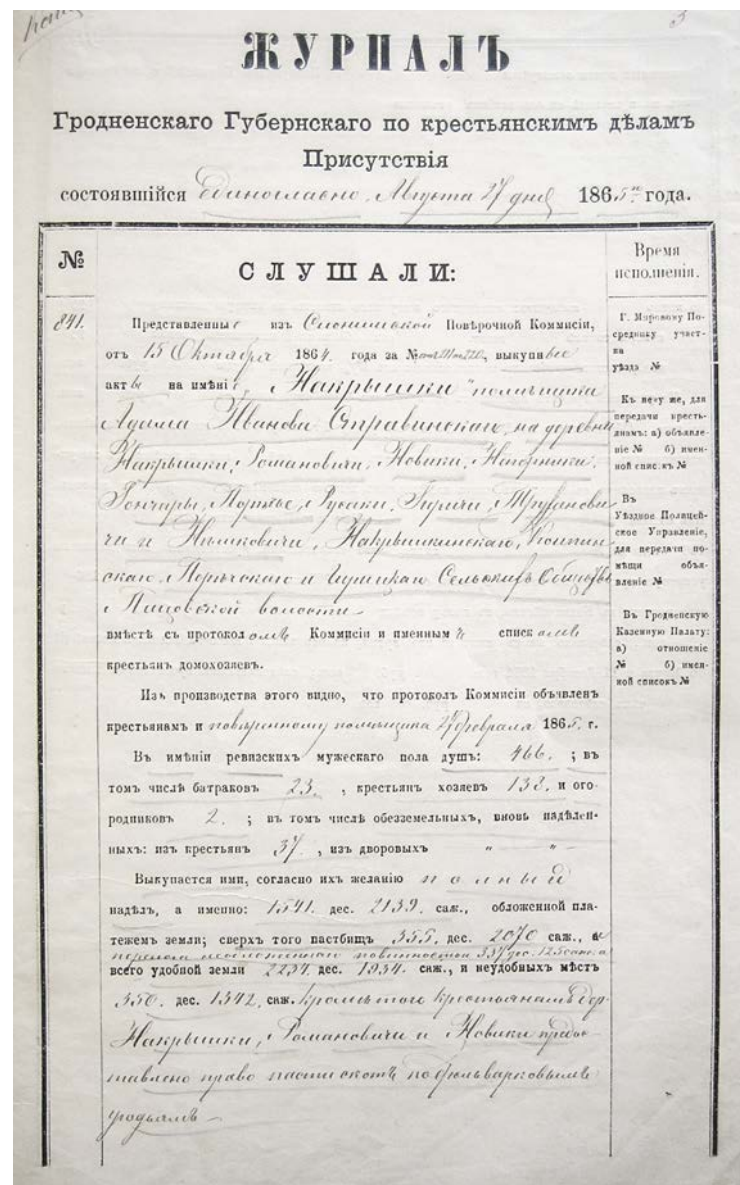 3
ЖУРНАЛЪ
Гродненскаго Губернскаго по крестьянскимъ дѣламъ
Присутствія
состоявшійся Единогласно, Августа 27 дня 1865го года.
№
СЛУШАЛИ:
Время
исполненія.
841.
Представленные изъ Слонимской Повѣрочной Коммисіи,
отъ 15 Октября 1864 года за №, выкупные
акты на имѣніе „Накрышки" помѣщика
Адама Иванова на деревни
Накрышки, Романовичи, Новики, Нагорники,
Гончары, Порѣчье, Русаки, Труханови-
чи и Нѣмковичи, Накрышкинскаго,
скаго, Порѣчскаго и Сельскихъ Обществъ
волости
вмѣстѣ съ протоколомъ Коммисіи и именнымъ спискомъ
крестьянъ домохозяевъ.
Изъ производства этого видно, что протоколъ Коммисіи объявленъ
крестьянамъ и повѣренному помѣщика 27 февраля 1865 г.
Въ имѣніи ревизскихъ мужескаго пола душъ: 466. ; въ
томъ числѣ батраковъ 23. , крестьянъ хозяевъ 138. и ого-
родниковъ 2. ; въ томъ числѣ обезземельныхъ, вновь надѣлен-
ныхъ: изъ крестьянъ 37. , изъ дворовыхъ „ „
Выкупается ими, согласно ихъ желанію полный
надѣлъ, а именно: 1541. дес. 2139. саж., обложенной пла-
тежемъ земли; сверхъ того пастбищъ 355. дес. 2070 саж., а
337 дес. 125 саж. а
всего удобной земли 2234. дес. 1934. саж., и неудобныхъ мѣстъ
350. дес. 1342. саж. кромѣ того крестьянамъ дер.
Накрышки, Романовичи и Новики предо-
ставлено право пасти скотъ по фольварковымъ
угодьямъ
Г. Мировому По-
среднику участ-
ка
уѣзда №
Къ нему же, для
передачи кресть-
янамъ: а) объявле-
ніе № б) имен-
ной спис. къ №
Въ
Уѣздное Полицей-
ское Управленіе,
для передачи по-
мѣщи объя-
вленіе №
Въ Гродненскую
Казенную Палату:
а) отношеніе
№ б) имен-
ной списокъ №